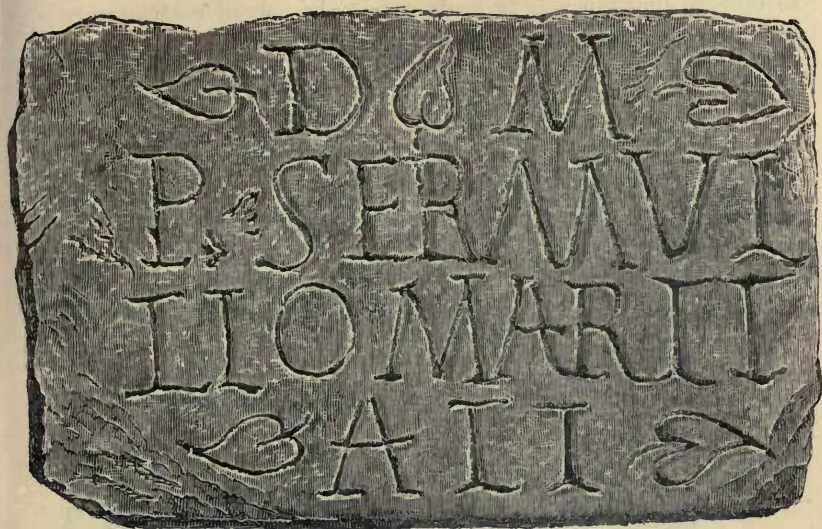 D M
P. SERMVL
LIOMARTI
ALI